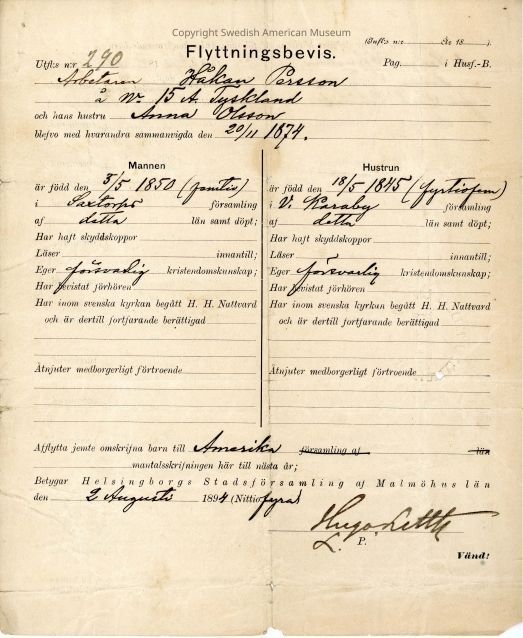 Copyright Swedish American Museum
Flyttningsbevis.
Utfl:s n:r 290
Infl:s n:r År 18 .
Pag. i Husf.-B.
Arbetaren Håkan Persson
å No 15 A. Tyskland
och hans hustru Anna Olsson
blefvo med hvarandra sammanvigda den 20/11 1874.
Mannen
är född den 3/5 1850 (femtio)
i Saxtorps församling
af detta län samt döpt;
Har haft skyddskoppor
Läser innantill;
Eger försvarlig kristendomskunskap;
Har bevistat förhören
Har inom svenska kyrkan begått H. H. Nattvard
och är dertill fortfarande berättigad
Åtnjuter medborgerligt förtroende
Hustrun
är född den 18/5 1845 (fyrtiofem)
i V. Karaby församling
af detta län samt döpt;
Har haft skyddskoppor
Läser innantill;
Eger försvarlig kristendomskunskap;
Har bevistat förhören
Har inom svenska kyrkan begått H. H. Nattvard
och är dertill fortfarande berättigad
Åtnjuter medborgerligt förtroende
Afflytta jemte omskrifna barn till Amerika församling af län
mantalsskrifningen här till nästa år;
Betygar Helsingborgs Stadsförsamling af Malmöhus län
den 2 Augusti 1894 (Nittiofyra)
Hugo
L. P.
Vänd!